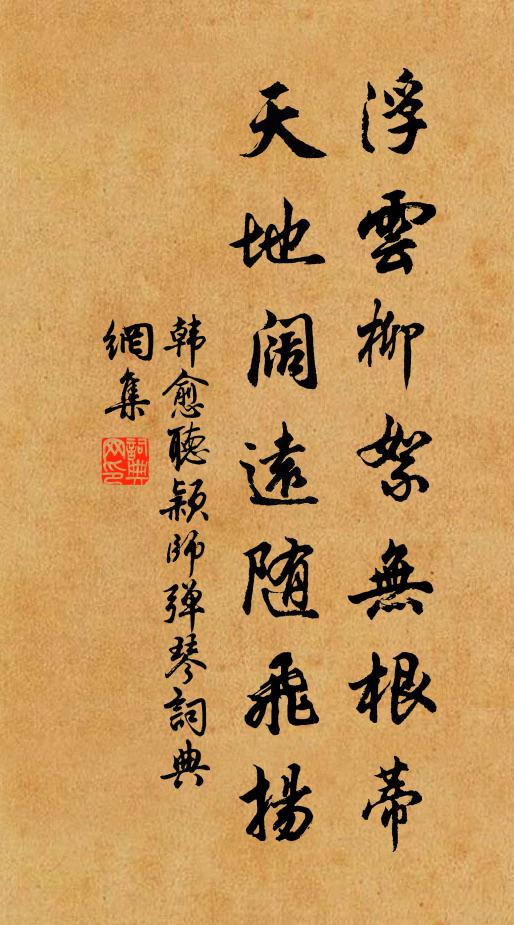 浮雲柳絮無根蒂
天地闊遠随飛揚
韩愈聽颖師弹琴詞典
網集
詞典
网印